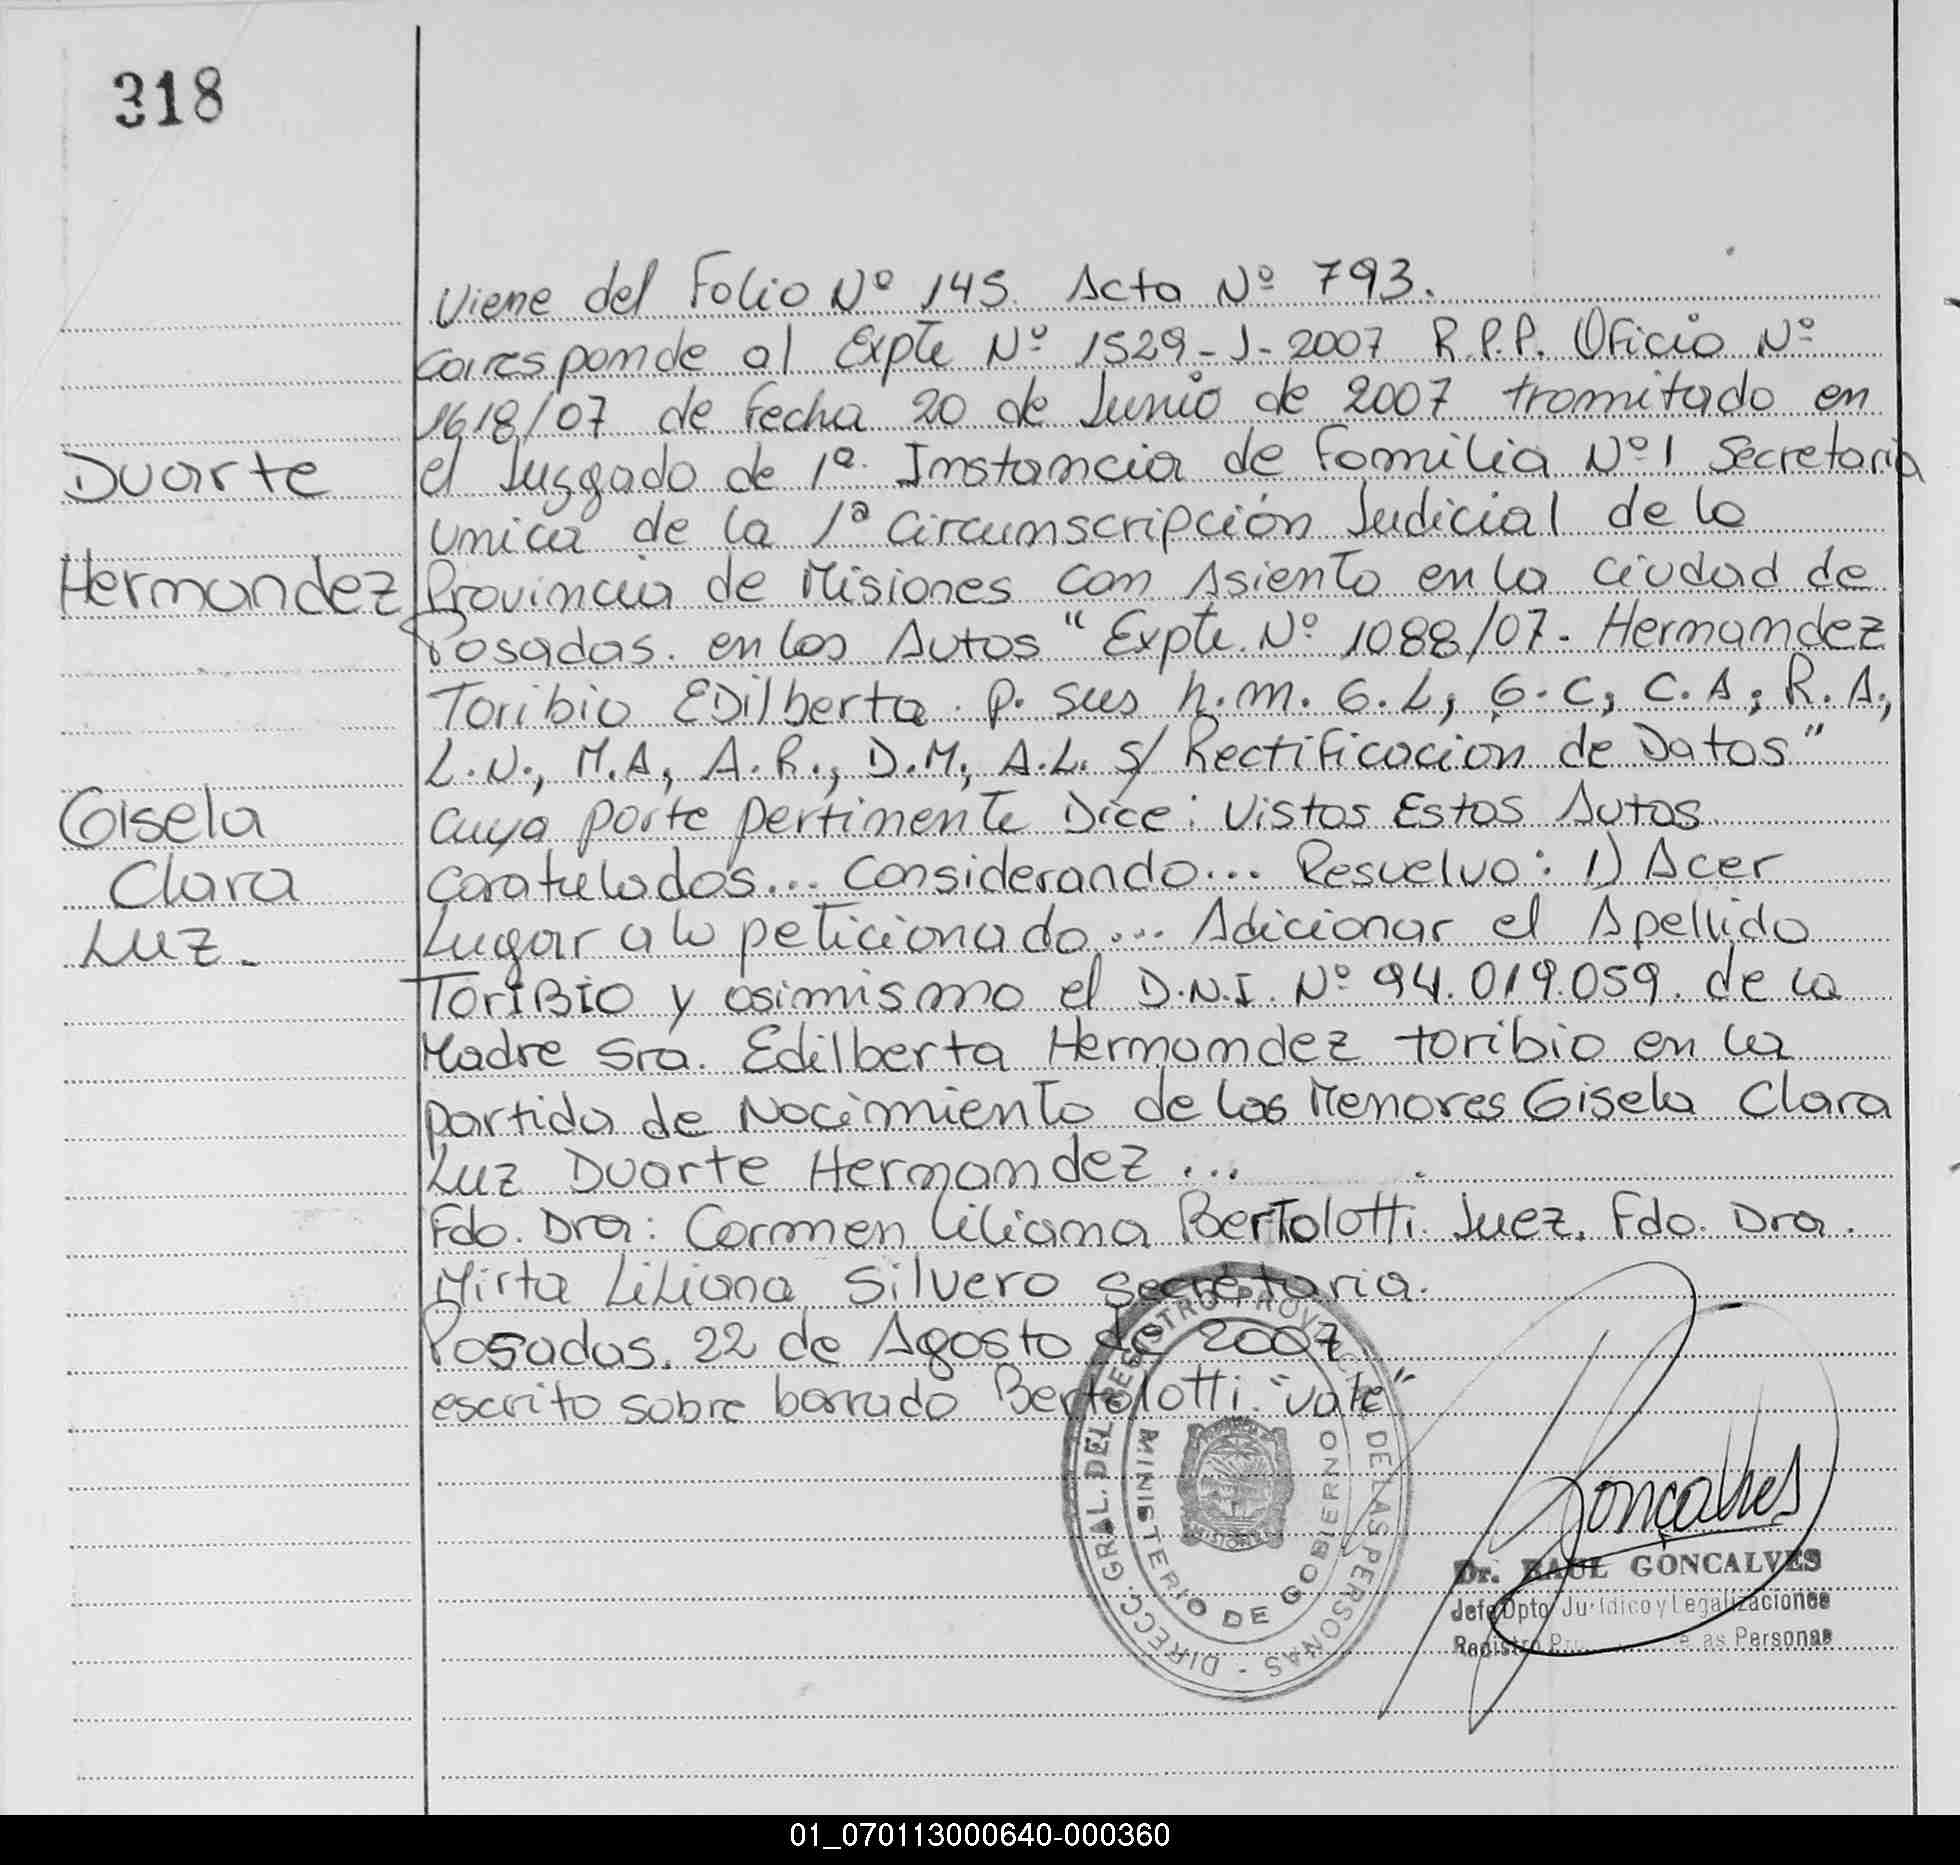 318
Viene del Folio Nº 145. Acta Nº 793.
Corresponde al Expte Nº 1529-J-2007 R.P.P. Oficio Nº
1618/07 de Fecha 20 de Junio de 2007 tramitado en
Duarte
el Juzgado de 1ª. Instancia de Familia Nº1 Secretaria
Unica de la 1ª Circunscripción Judicial de la
Hernandez
Provincia de Misiones con Asiento en la Ciudad de
Posadas. en los Autos "Expte. Nº 1088/07. Hernandez
Toribio Edilberta. p. sus h.m. G.L; G.C; C.A; R.A.;
L.N., M.A, A.R., D.M, A.L. S/ Rectificacion de Datos"
Gisela
cuya parte pertinente Dice: Vistos Estos Autos
Clara
Caratulados... Considerando... Resuelvo: 1) Acer
Luz.
Lugar a lo peticionado... Adicionar el Apellido
Toribio y asimismo el D.N.I. Nº 94.019.059. de la
Madre Sra. Edilberta Hernandez toribio en la
partida de Nacimiento de los Menores Gisela Clara
Luz Duarte Hernandez...
Fdo. Dra: Carmen Liliana Bertolotti. Juez. Fdo. Dra.
Mirta Liliana Silvero Secretaria.
Posadas. 22 de Agosto de 2007
escrito sobre borrado Bertolotti. "vale"
DIRECC. GRAL. DEL REGISTRO PROVINCIAL DE LAS PERSONAS -
MINISTERIO DE GOBIERNO
MISIONES
Goncalves
Dr. RAUL GONCALVES
Jefe Dpto Jurídico y Legalizaciones
Registro as Personas
01_070113000640-000360